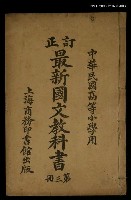 中華民國高等小學用
訂正
最新國文教科書
第三冊
上海商務印書館出版